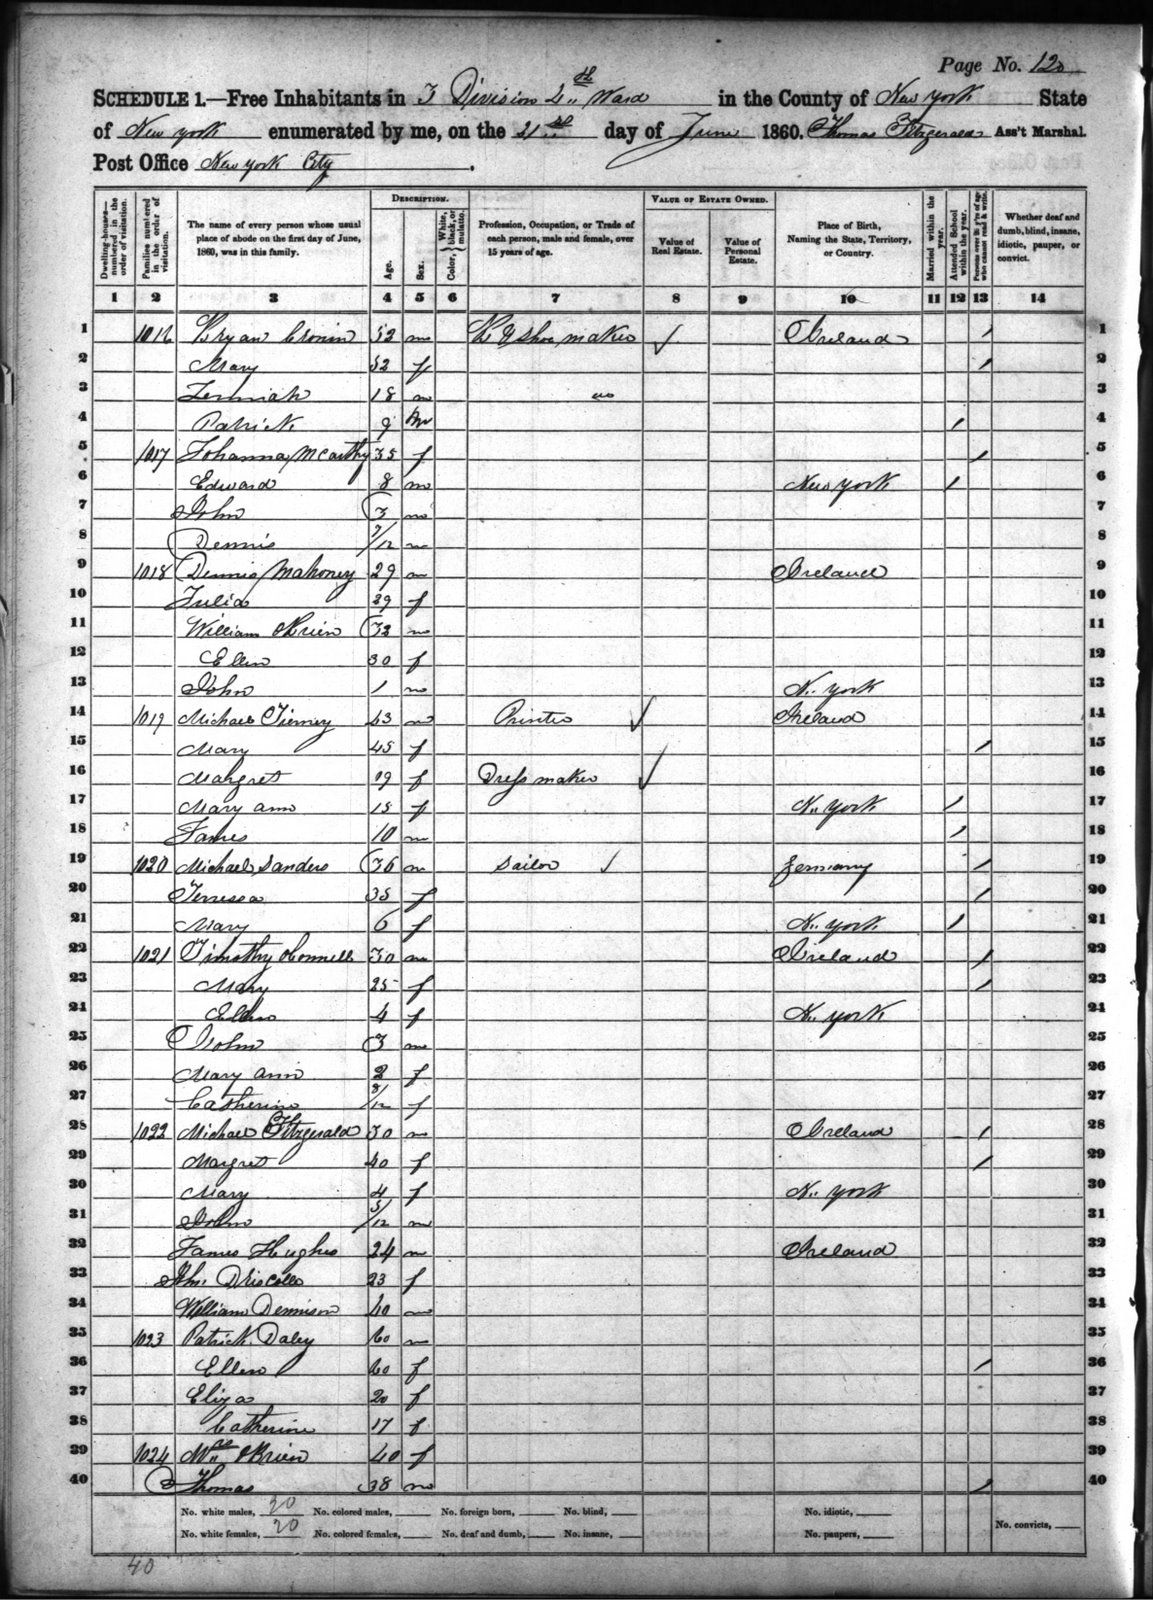 Page No. 120
SCHEDULE 1.—Free Inhabitants in 3 Division 4th Ward in the County of New York State
of New York enumerated by me, on the 21st day of June 1860. Thomas Fitzgerald Ass't Marshal.
Post Office New York City.
Dwelling-houses—numbered in the order of visitation.
Families numbered in the order of visitation.
The name of every person whose usual place of abode on the first day of June, 1860, was in this family.
DESCRIPTION.
Age. Sex. Color, White, black, or mulatto.
Profession, Occupation, or Trade of each person, male and female, over 15 years of age.
VALUE OF ESTATE OWNED.
Value of Real Estate. Value of Personal Estate.
Place of Birth, Naming the State, Territory, or Country.
Married within the year.
Attended School within the year.
Persons over 20 y'rs of age who cannot read & write.
Whether deaf and dumb, blind, insane, idiotic, pauper, or convict.
1 2 3 4 5 6 7 8 9 10 11 12 13 14
1 1016 Bryan Cronin 52 m B & Shoe maker Ireland / 1
2 Mary 52 f / 2
3 Jermiah 18 m 3
4 Patrick 9 m / 4
5 1017 Johanna McCarthy 35 f / 5
6 Edward 8 m New York / 6
7 John 3 m 7
8 Dennis 7/12 m 8
9 1018 Dennis Mahoney 29 m Ireland 9
10 Julia 29 f 10
11 William OBrien 32 m 11
12 Ellen 30 f 12
13 John 1 m N. York 13
14 1019 Michael Tierney 43 m Printer Ireland 14
15 Mary 45 f / 15
16 Margret 19 f Dress maker 16
17 Mary ann 15 f N. York / 17
18 James 10 m / 18
19 1020 Michael Sanders 36 m Sailor Germany / 19
20 Terressa 35 f / 20
21 Mary 6 f N. York / 21
22 1021 Timothy OConnell 30 m Ireland / 22
23 Mary 25 f / 23
24 Ellen 4 f N. York 24
25 John 3 m 25
26 Mary ann 2 f 26
27 Catherine 8/12 f 27
28 1022 Michael Fitzgerald 30 m Ireland / 28
29 Margret 40 f / 29
30 Mary 4 f N. York 30
31 John 5/12 m 31
32 James Hughes 24 m Ireland 32
33 Driscoll 23 f 33
34 William Dennison 40 m 34
35 1023 Patrick Daley 60 m 35
36 Ellen 60 f / 36
37 Eliza 20 f 37
38 Catherine 17 f 38
39 1024 Mrs OBrien 40 f 39
40 Thomas 38 m / 40
No. white males, 20 No. colored males, No. foreign born, No. blind, No. idiotic,
No. white females, 20 No. colored females, No. deaf and dumb, No. insane, No. paupers, No. convicts,
40